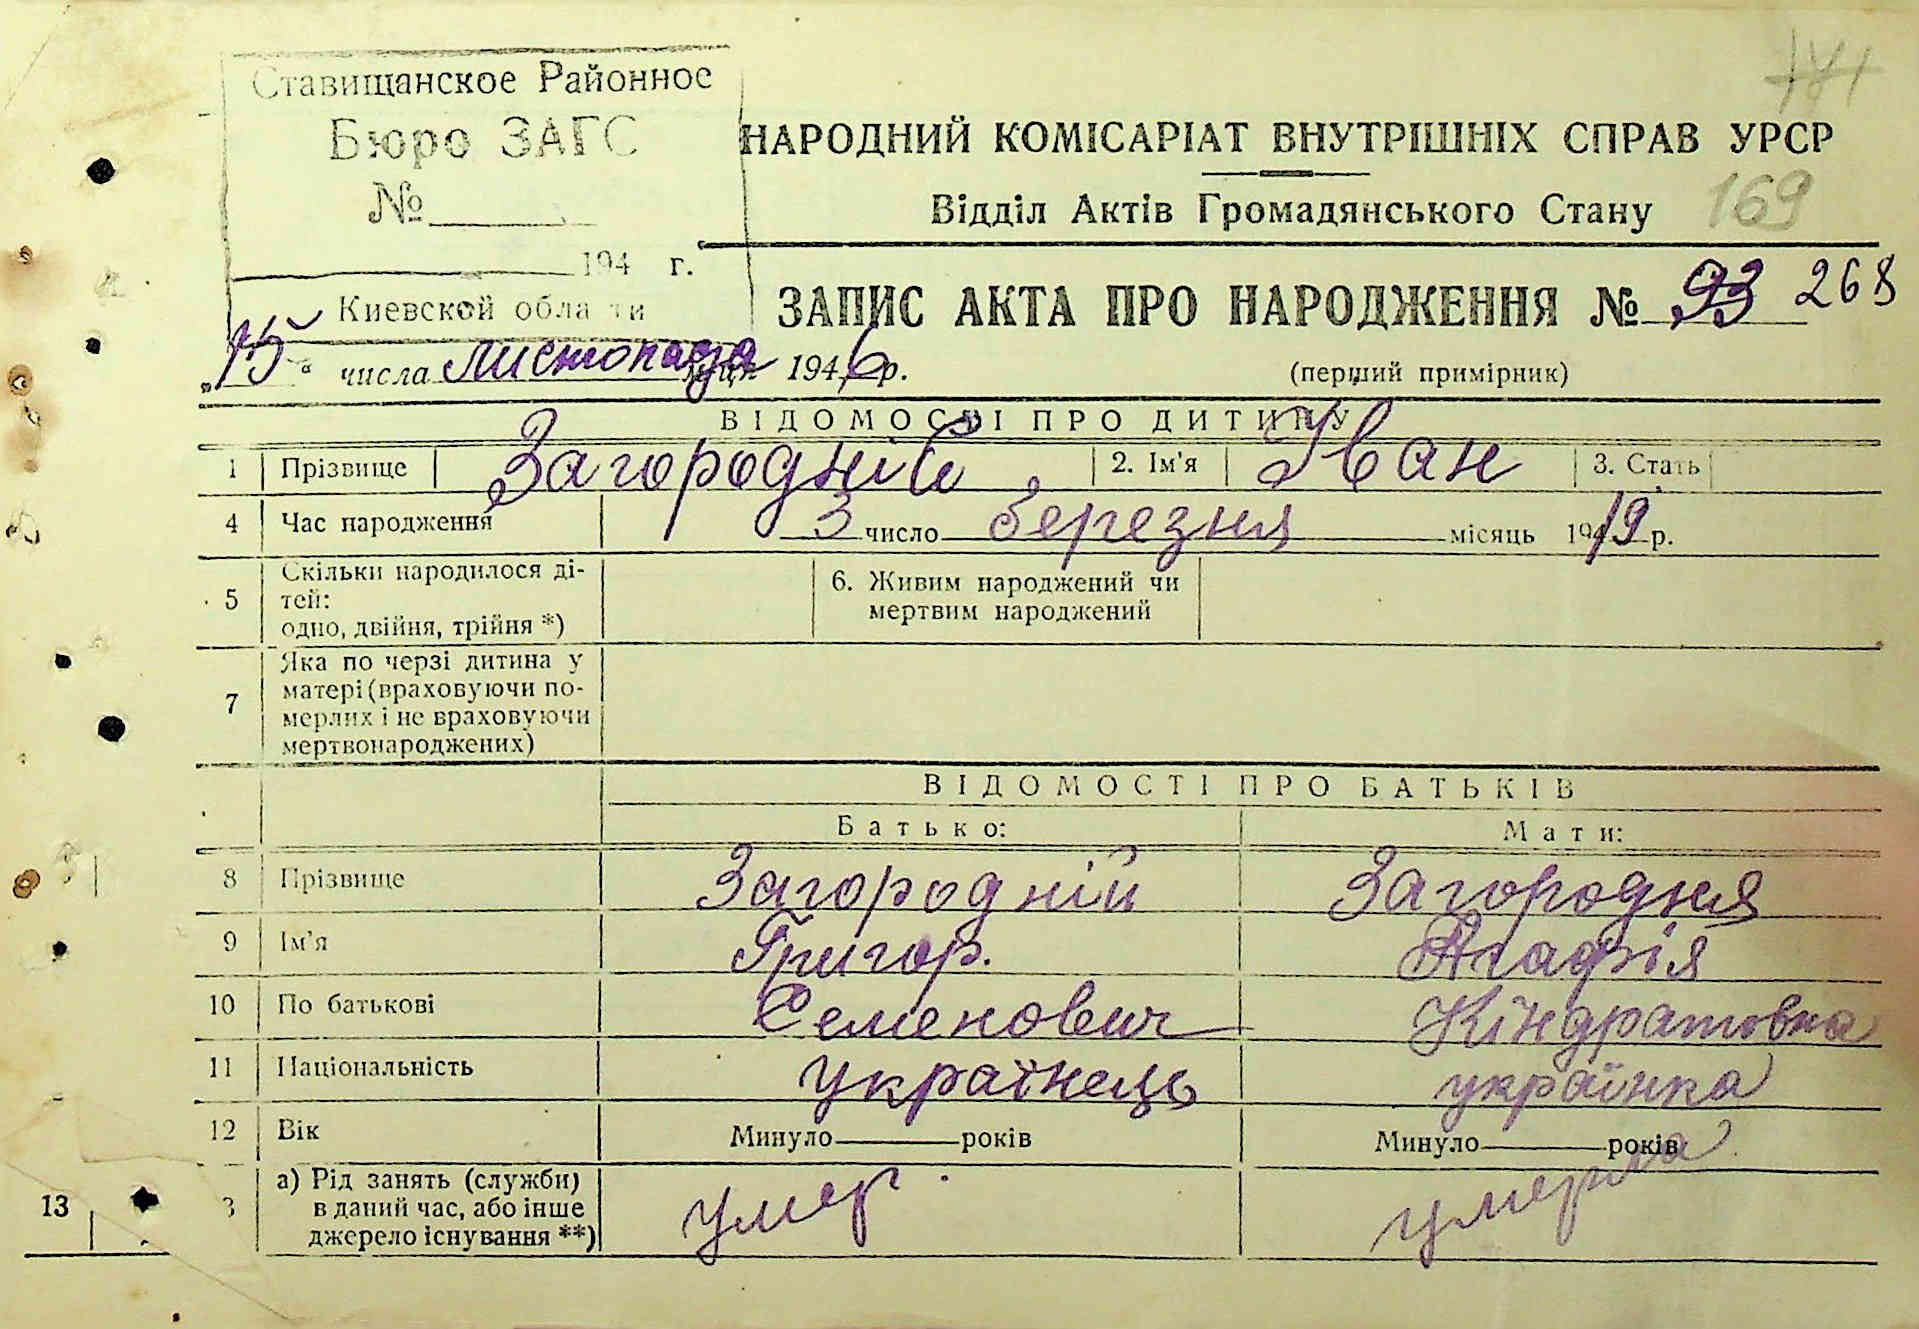 Ставищанское Районное
Бюро ЗАГС
№
194 г.
Киевской области
НАРОДНИЙ КОМІСАРІАТ ВНУТРІШНІХ СПРАВ УРСР
Відділ Актів Громадянського Стану 169
ЗАПИС АКТА ПРО НАРОДЖЕННЯ № 93 268
„15“ числа листопада м-ця 1946 р. (перший примірник)
ВІДОМОСТІ ПРО ДИТИНУ
1 Прізвище Загородній 2. Ім'я Іван 3. Стать
4 Час народження 3 число березня місяць 1919 р.
5 Скільки народилося ді-
тей:
одно, двійня, трійня *)
6. Живим народжений чи
мертвим народжений
7 Яка по черзі дитина у
матері (враховуючи по-
мерлих і не враховуючи
мертвонароджених)
ВІДОМОСТІ ПРО БАТЬКІВ
Батько: Мати:
8 Прізвище Загородній Загородня
9 Ім'я Григор. Агафія
10 По батькові Семенович Кіндратовна
11 Національність українець українка
12 Вік Минуло років Минуло років
3 а) Рід занять (служби)
в даний час, або інше
джерело існування **)
умер умерла
13